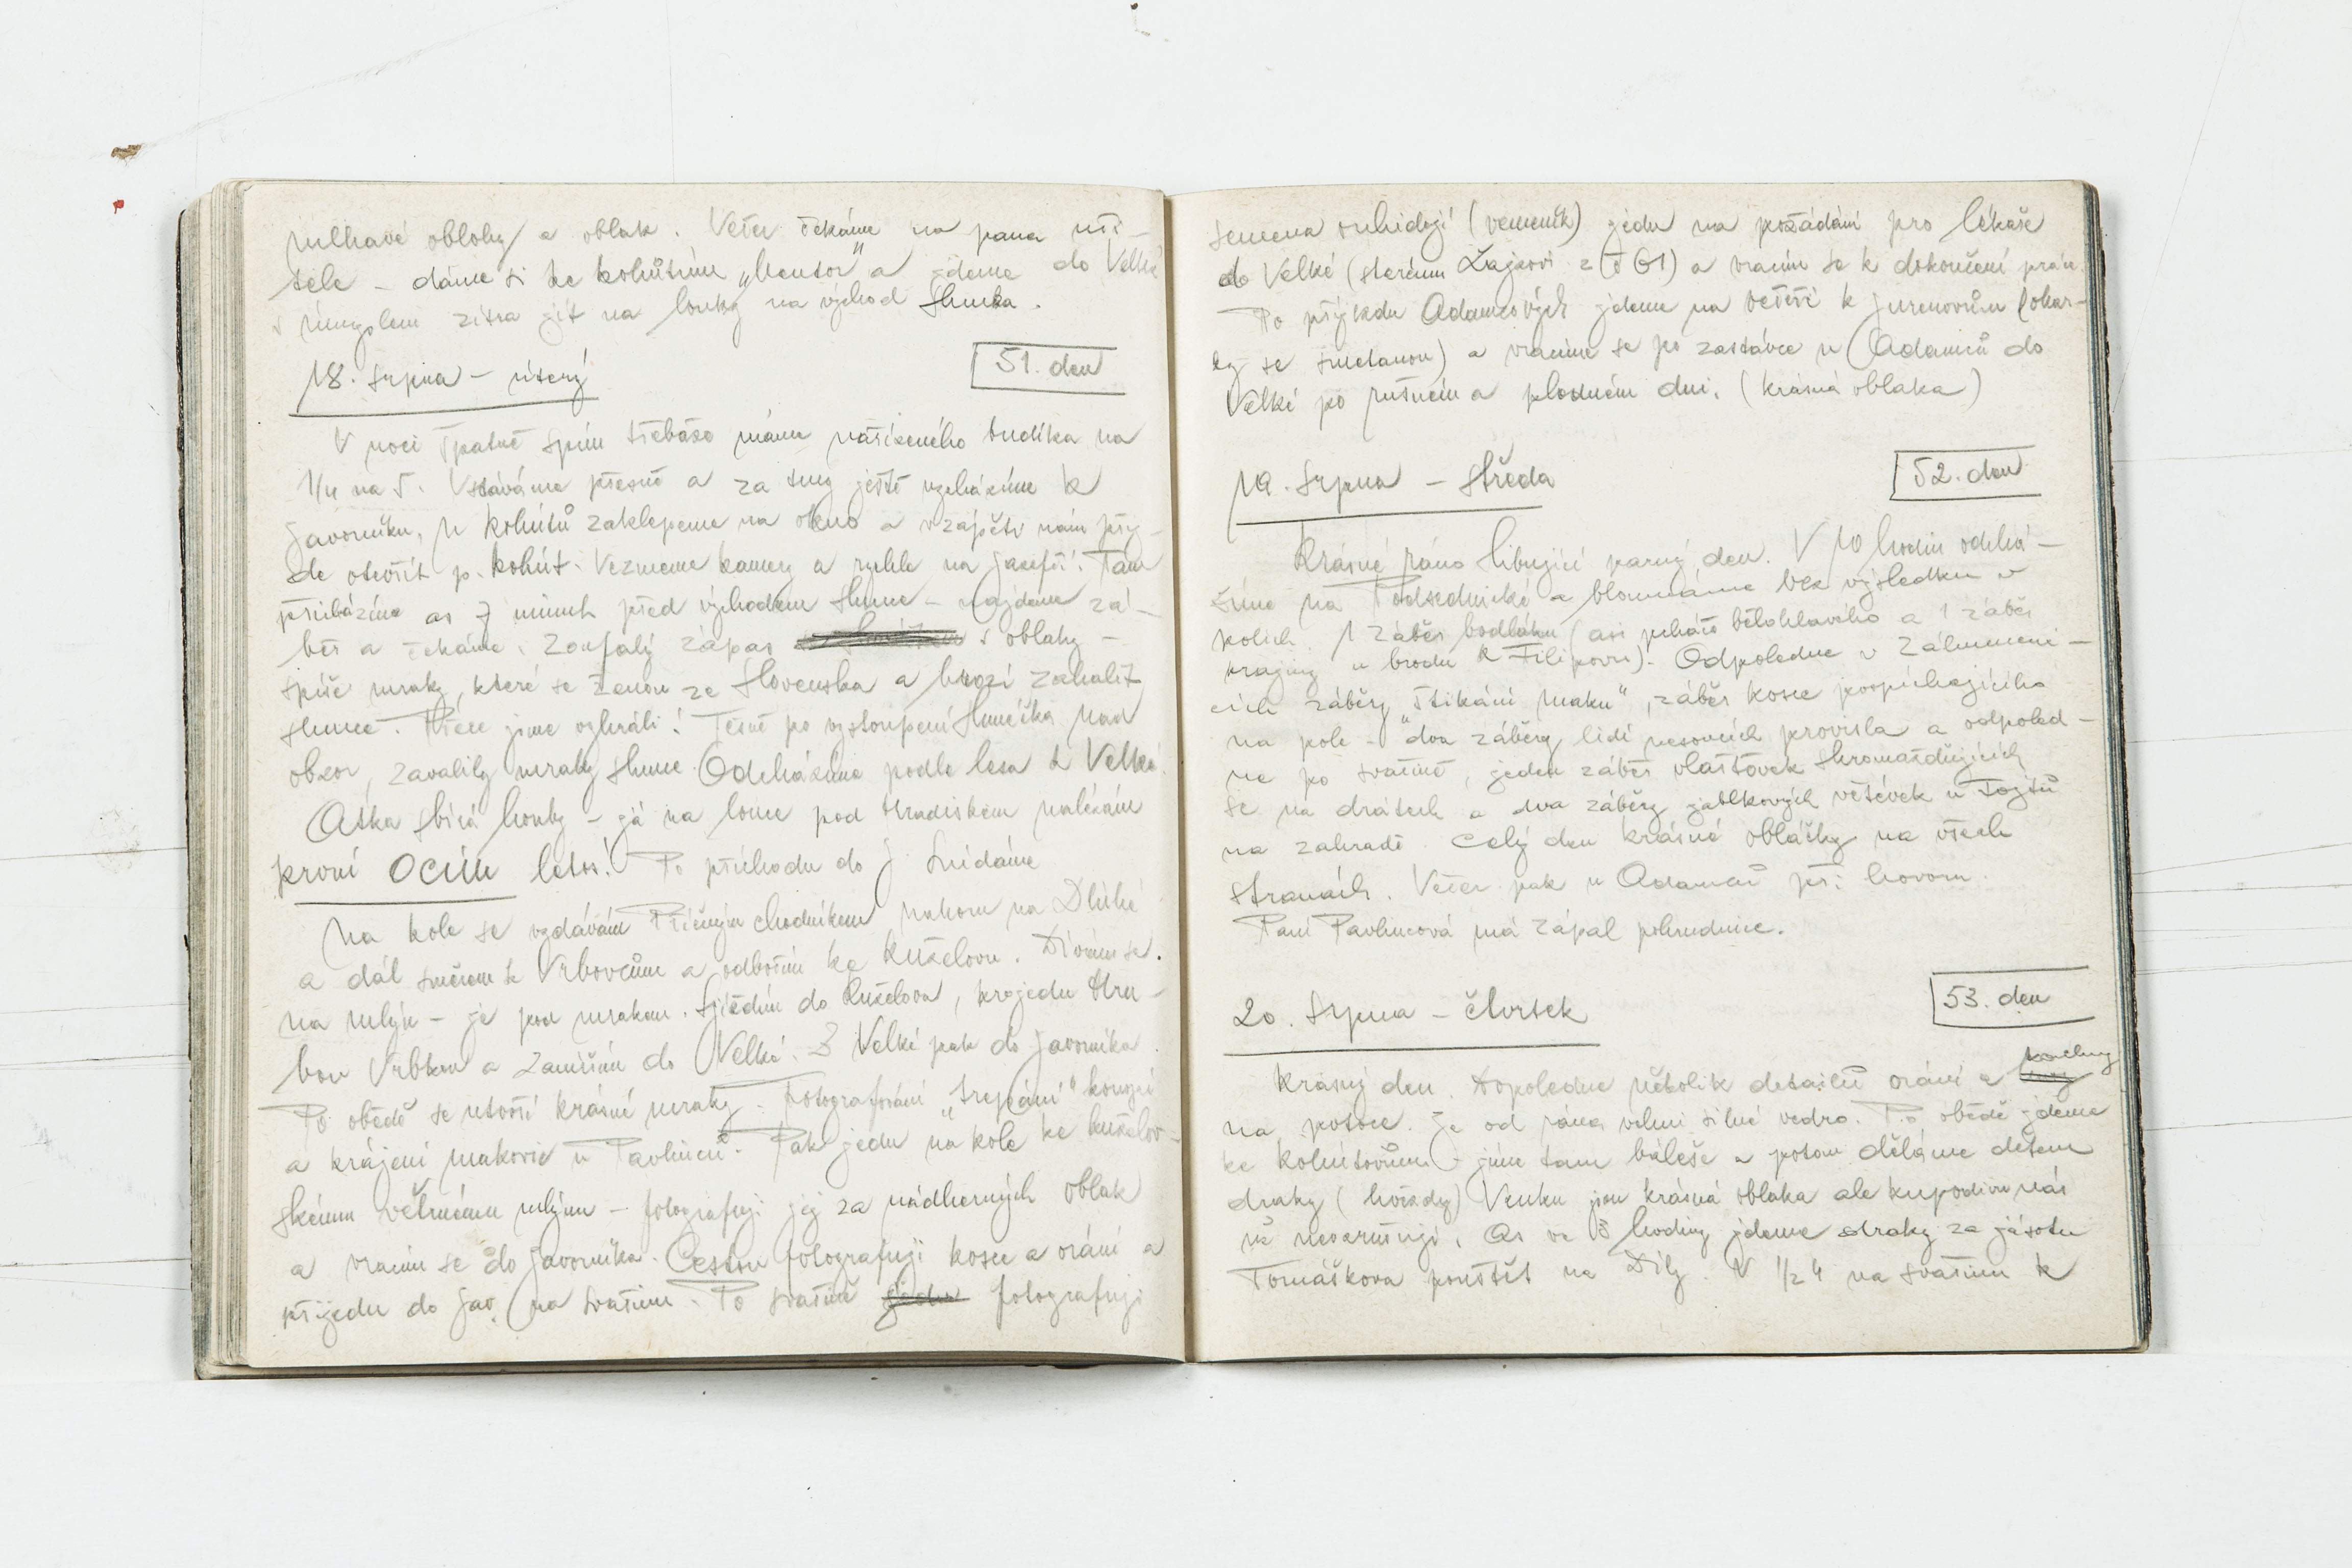 mlhavé oblohy a oblak. Večer čekáme na pana uči-
tele – dáme si ke kohútům „Mentor" a jdeme do Velké
s úmyslem zítra jít na louky na východ slunka.
18. srpna – úterý
51. den
V noci špatně spím třebaže máme nařízeného budíka na
1/4 na 5. Vstáváme přesně a za tmy ještě vycházíme k
Javorníku, u kohútů zaklepeme na okno a vzápětí nám přij-
de otevřít p. kohút. Vezmeme kamery a rychle na Tam
přicházíme as 7 minut před východem slunce – najdeme zá-
běr a čekáme. Zoufalý zápas s oblaky –
spíše mraky, které se ženou ze Slovenska a hrozí zahalit
slunce. Přece jsme vyhráli! Těsně po vystoupení sluníčka nad
obzor, zavalily mraky slunce. Odcházíme podle lesa k Velké.
Atka sbírá houby – já na louce pod Hradiskem nalézám
první OCÚN letos! Po příchodu do J. snídáme
Na kole se vydávám Příčným chodníkem nahoru na Dlúhé
a dál směrem k Vrbovcům a odbočím ke Kuželovu. Dívám se
na mlýn – je pod mrakem. Sjíždím do Kuželova, projedu Hru-
bou Vrbkou a zamířím do Velké. Z Velké pak do Javorníka.
Po obědě se utvoří krásné mraky. Fotografování „trepání" konopí
a krájení makovic u Pavlinců. Pak jedu na kole ke kuželov-
skému větrnému mlýnu – fotografuji jej za nádherných oblak
a vracím se do Javorníka. Cestou fotografuji kosce a orání a
přijedu do Jav. na svačinu. Po svačině fotografuji
semena orchidejí (vemeník) jedu na požádání pro lékaře
do Velké (starému Zajícovi z č 61) a vracím se k dokončení práce.
Po příjezdu Adamcových jdeme na večeři k Jurenovům (okur-
ky se smetanou) a vracíme se po zastávce u Adamců do
Velké po rušném a plodném dni. (krásná oblaka)
19. srpna – středa
52. den
Krásné ráno slibující parný den. V 10 hodin odchá-
zíme na Podsednické a bloumáme bez výsledku v
polích. 1 záběr bodláku (asi pcháč bělohlavého a 1 záběr
krajiny u brodu k Filipovu). Odpoledne v Záhumeni-
cích záběry „štikání maku", záběr kosce pospíchajícího
na pole – dva záběry lidí nesoucích provisla a odpoled-
ne po svačině, jeden záběr vlaštovek shromažďujících
se na drátech a dva záběry jablkových větévek u Fojtů
na zahradě. Celý den krásné obláčky na všech
stranách. Večer pak u Adamců při hovoru.
Paní Pavlincová má zápal pohrudnice.
20. srpna – čtvrtek
53. den
Krásný den. Dopoledne několik detailů orání a kachny
na potoce. Je od rána velmi silné vedro. Po obědě jdeme
ke kohútovům – jíme tam báleše a potom děláme dětem
draky (hvězdy) Venku jsou krásná oblaka ale kupodivu nás
už nevzrušují. As ve 3 hodiny jdeme draky za jásotu
Tomáškova pouštět na Díly. V 1/2 4 na svačinu k